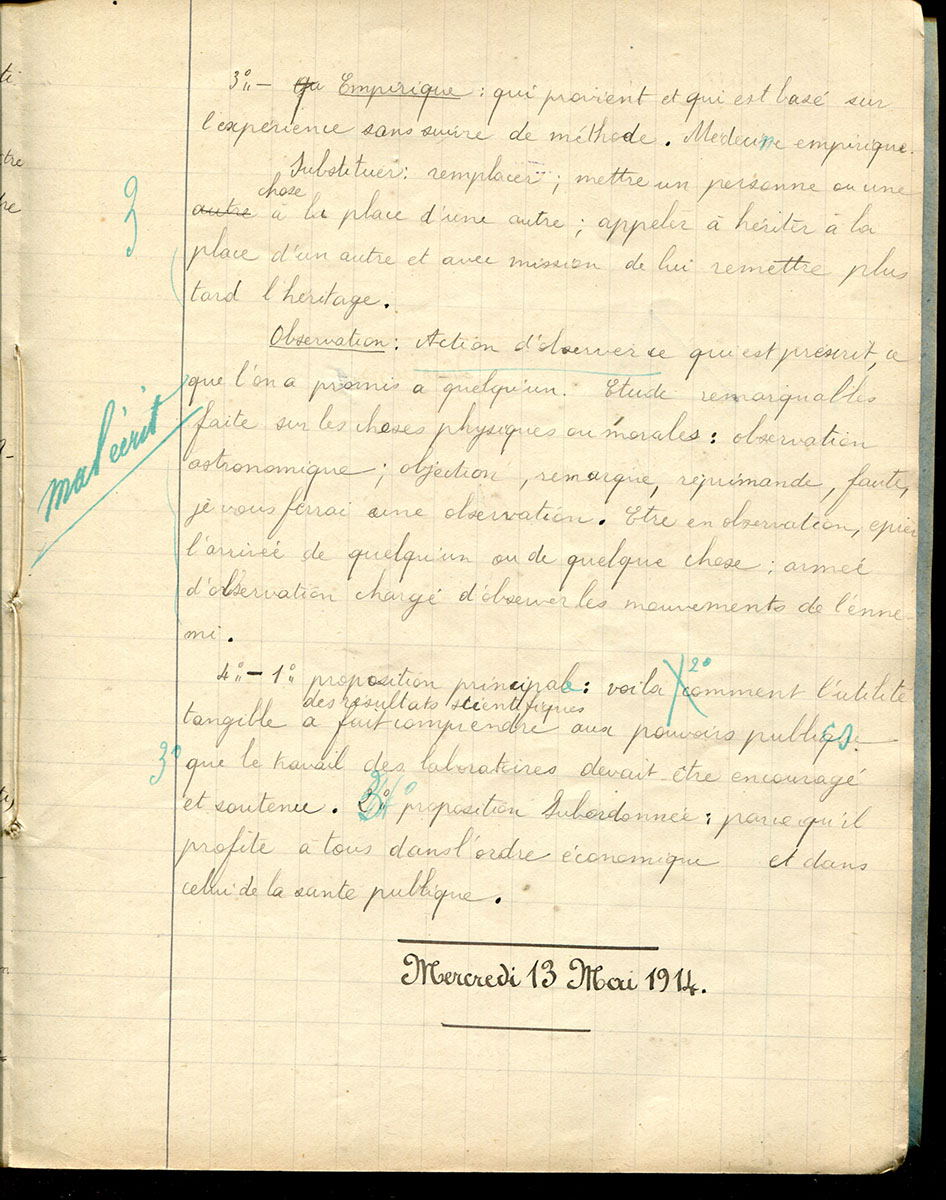 3° — Empirique : qui provient et qui est basé sur
l'expérience sans suivre de méthode. Médecine empirique.
Substituer : remplacer ; mettre un personne ou une
chose
autre à la place d'une autre ; appeler à hériter à la
3
place d'un autre et avec mission de lui remettre plus
tard l'héritage.
Observation : Action d'observer ce qui est préscrit, ce
que l'on a promis a quelqu'un. Etude remarquables
mal écrit
faite sur les choses physiques ou morales : observation
astronomique ; objection, remarque, réprimande, faute,
je vous ferrai une observation. Etre en observation, epier
l'arriveé de quelqu'un ou de quelque chose ; armeé
d'observation chargé d'observer les mouvements de l'énne-
mi.
4° — 1° proposition principale : voila 2° comment l'utilité
des résultats scientifiques
tangible a fait comprendre aux pouvoirs publics
3° que le travail des laboratoires devait être encouragé
et soutenu. proposition Subordonnée : parce qu'il
profite à tous dans l'ordre économique et dans
celui de la santé publique.
Mercredi 13 Mai 1914.